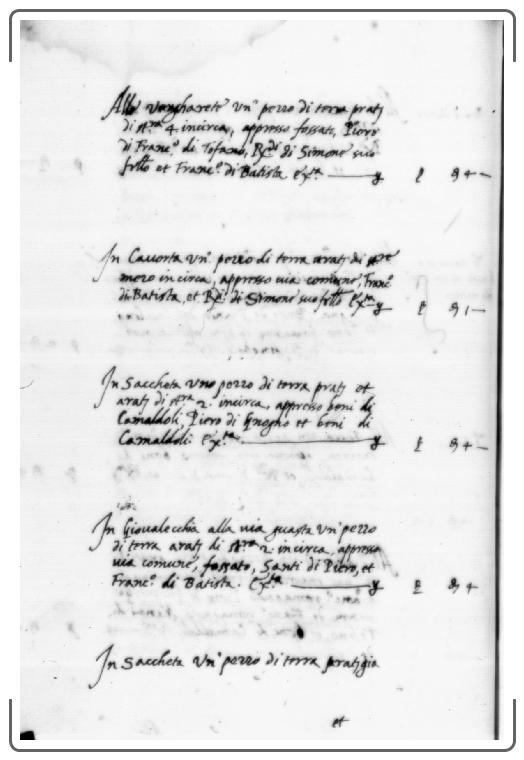 Alle vangharete un° pezzo di terra pratj
di st.ra 4 incirca, appresso fossato, Piero
di Franc.° di Tofano, R.di di Simone suo
fr.llo et Franc.° di Batista Ex.ta
In Cavorta un° pezzo di terra aratj di st.re
mezo incirca, appresso via comune, Franc.°
di Batista, et R.di di Simone suo fr.llo Ex.ta
In Saccheta uno pezzo di terra pratj et
aratj di st.ra 2. incirca, appresso beni di
Camaldoli, Piero di Gnogno et beni di
Camaldoli. Ex.ta
In Giovalecchia alla via guasta un° pezzo
di terra aratj di st.ra 2. incirca, appresso
via comune, fossato, Santi di Piero, et
Franc.° di Batista. Ex.ta
In Saccheta un° pezzo di terra pratj gia
et